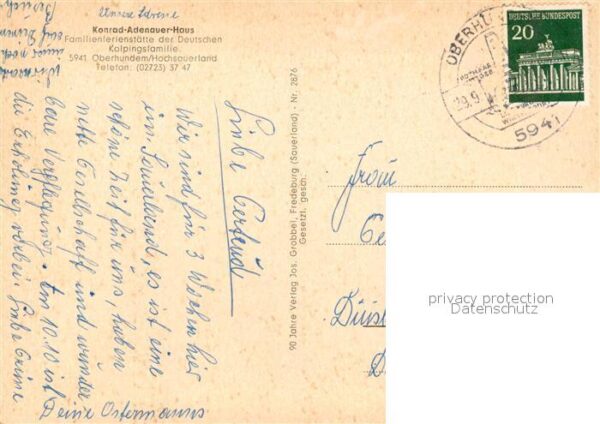 Unsere Adresse
Konrad-Adenauer-Haus
Familienferienstätte der Deutschen
Kolpingsfamilie.
5941 Oberhundem/Hochsauerland
Telefon: (02723) 37 47
Liebe Gertrude
Wir sind für 3 Wochen hier
im Sauerland, es ist eine
schöne Zeit für uns, haben
nette Gesellschaft und wunder
bare Verpflegung. Am 10.10 ist
die Erholung vorbei. Liebe Grüße
Deine Ostermanns
90 Jahre Verlag Jos. Grobbel, Fredeburg (Sauerland) - Nr. 2876
Gesetzl. gesch.
DEUTSCHE BUNDESPOST
20
OBERHU
29.9
5941
Frau
Ge
Duis
privacy protection
Datenschutz